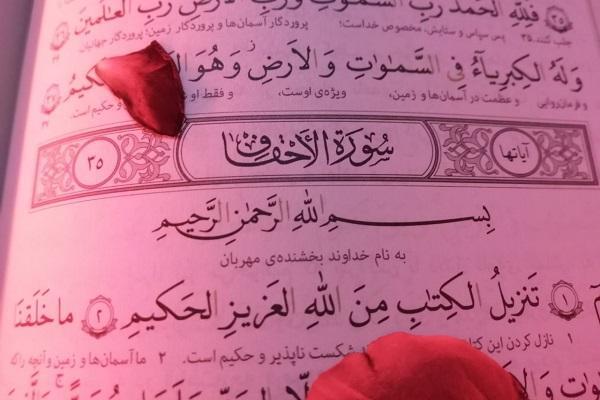 فَلِلَّهِ الْحَمْدُ رَبِّ السَّمٰوٰتِ وَرَبِّ الْأَرْضِ رَبِّ الْعَالَمِينَ ٣٦
جلب کنند. ۳۵ پس سپاس و ستایش، مخصوص خداست؛ پروردگار آسمان‌ها و پروردگار زمین؛ پروردگار جهانیان
وَلَهُ الْكِبْرِيَاءُ فِي السَّمٰوٰتِ وَالْأَرْضِ وَهُوَ الْحَكِيمُ ٣٧
و فرمانروایی و عظمت در آسمان‌ها و زمین، ویژه‌ی اوست، و فقط او و حکیم است.
آیاتها سُورَةُ الْأَحْقَافِ ٣٥
بِسْمِ اللَّهِ الرَّحْمٰنِ الرَّحِيمِ
به نام خداوند بخشنده‌ی مهربان
تَنْزِيلُ الْكِتٰبِ مِنَ اللَّهِ الْعَزِيزِ الْحَكِيمِ ٢ مَا خَلَقْنَا
۱ نازل کردن این شکست ناپذیر و حکیم است. ۲ ما آسمان‌ها و زمین و آنچه را که